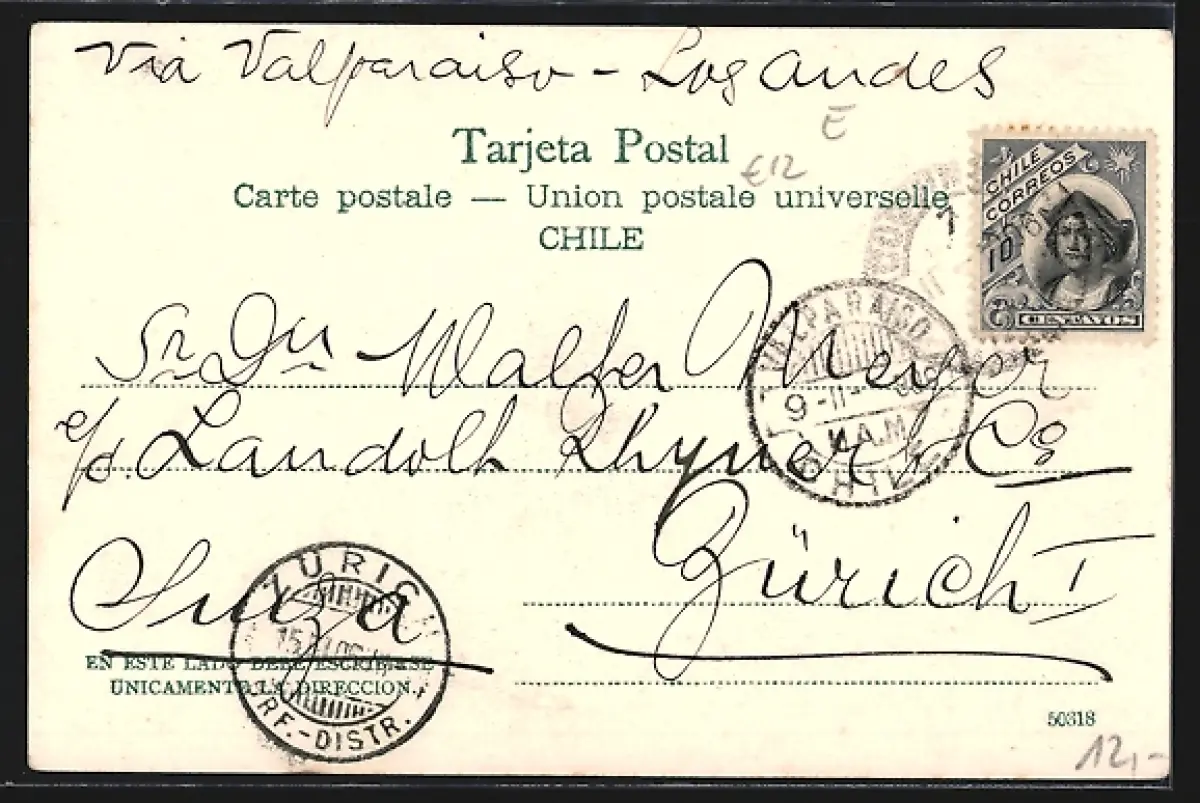 Via Valparaiso - Los Andes
E
Tarjeta Postal
€12
Carte postale — Union postale universelle
CHILE
CHILE
CORREOS
10
CENTAVOS
VALPARAISO
9-II-
11 A.M
CHILE
Sr. Dn Walter Meyer
c/o. Landolt Rhyner & Co
Zürich I
Suiza
ZÜRICH
BRF.-DISTR.
EN ESTE LADO DEBE ESCRIBIRSE
UNICAMENTE LA DIRECCION.
50318
12,-